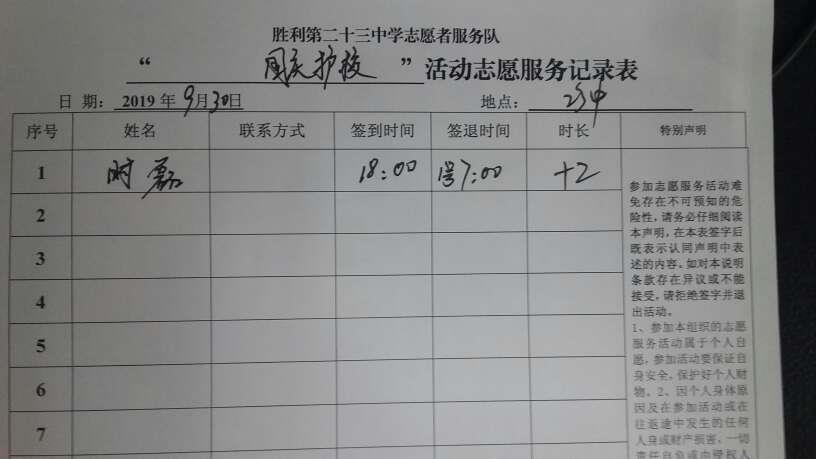 胜利第二十三中学志愿者服务队
“国庆护校”活动志愿服务记录表
日 期: 2019年9月30日 地点:
序号 姓名 联系方式 签到时间 签退时间 时长 特别声明
1 时磊 18:00 1号7:00 +2
2
3
4
5
6
7
参加志愿服务活动难
免存在不可预知的危
险性,请务必仔细阅读
本声明,在本表签字后
既表示认同声明中表
述的内容。如对本说明
条款存在异议或不能
接受,请拒绝签字并退
出活动。
1、参加本组织的志愿
服务活动属于个人自
愿,参加活动要保证自
身安全,保护好个人财
物。2、因个人身体原
因及在参加活动或在
往返途中发生的任何
人身或财产损害,一切
责任自负或由侵权人